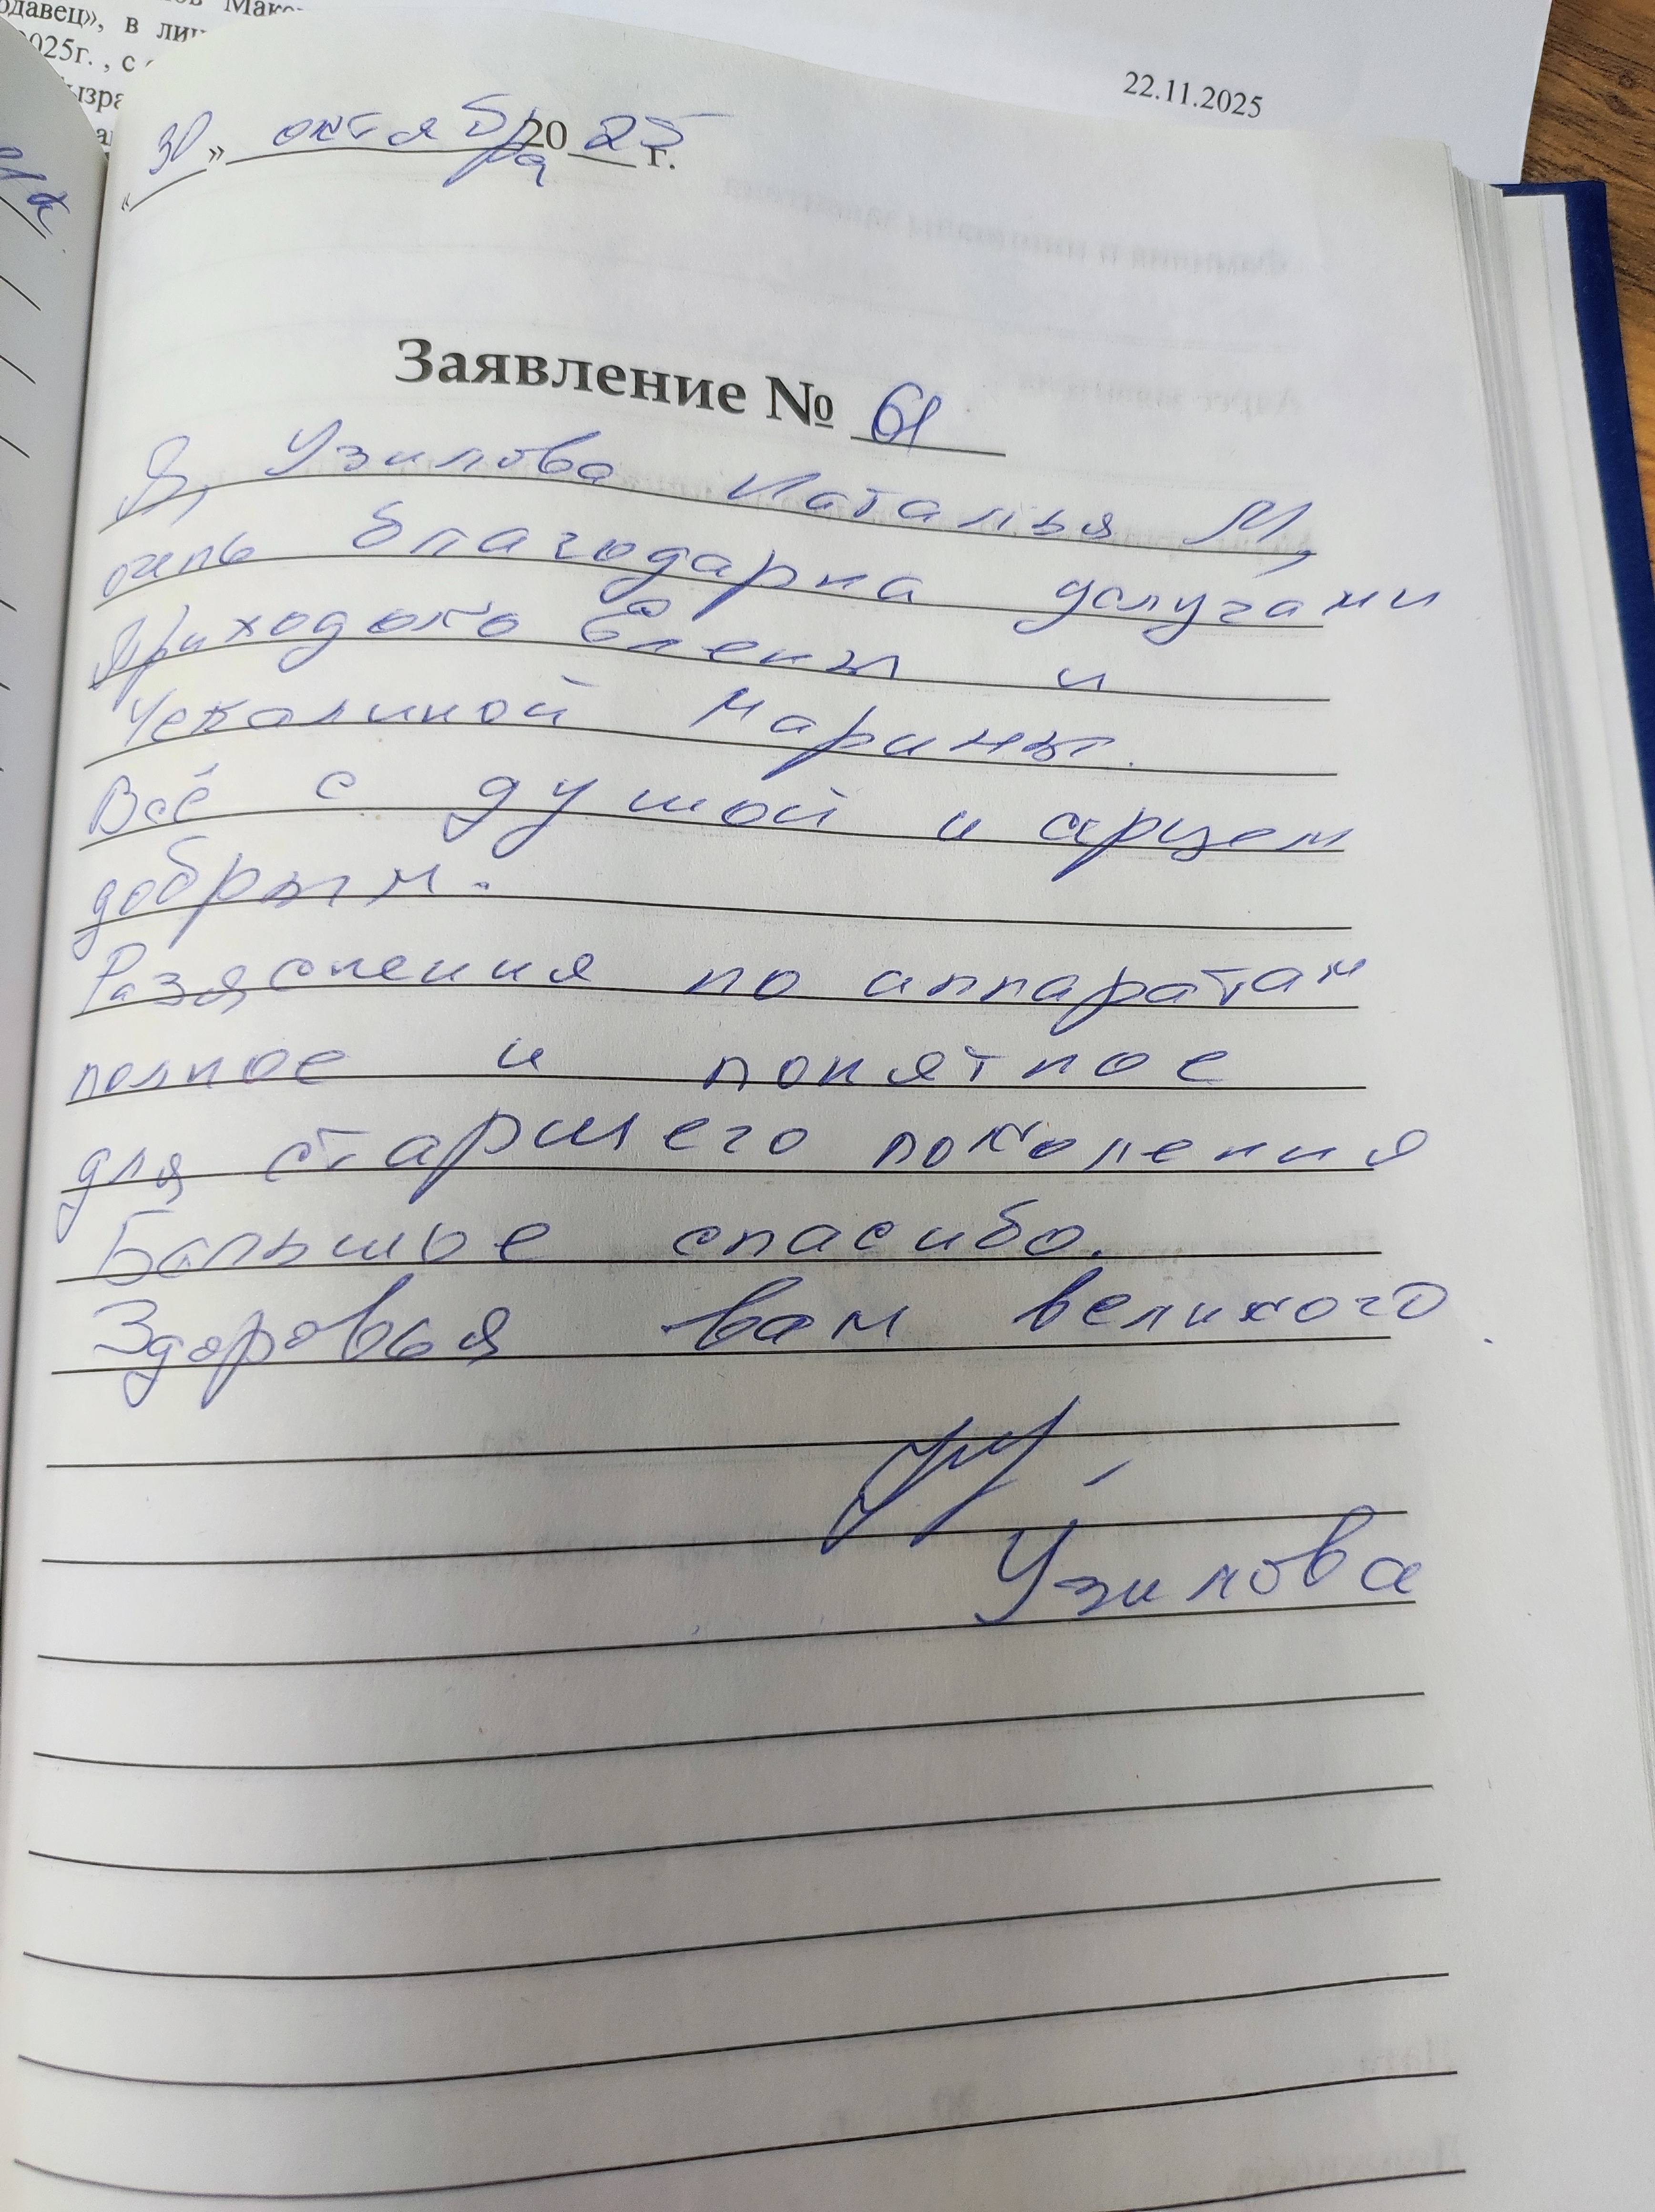 22.11.2025
«30» октября 2025 г.
Заявление № 61
Я, Узилова Наталья М,
очень благодарна услугами
Приходько Елены и
Чекалиной Марины.
Всё с душой и серцем
добрым.
Разяснения по аппаратам
полное и понятное
для старшего поколения
Балышое спасибо.
Здоровья вам великого
Узилова